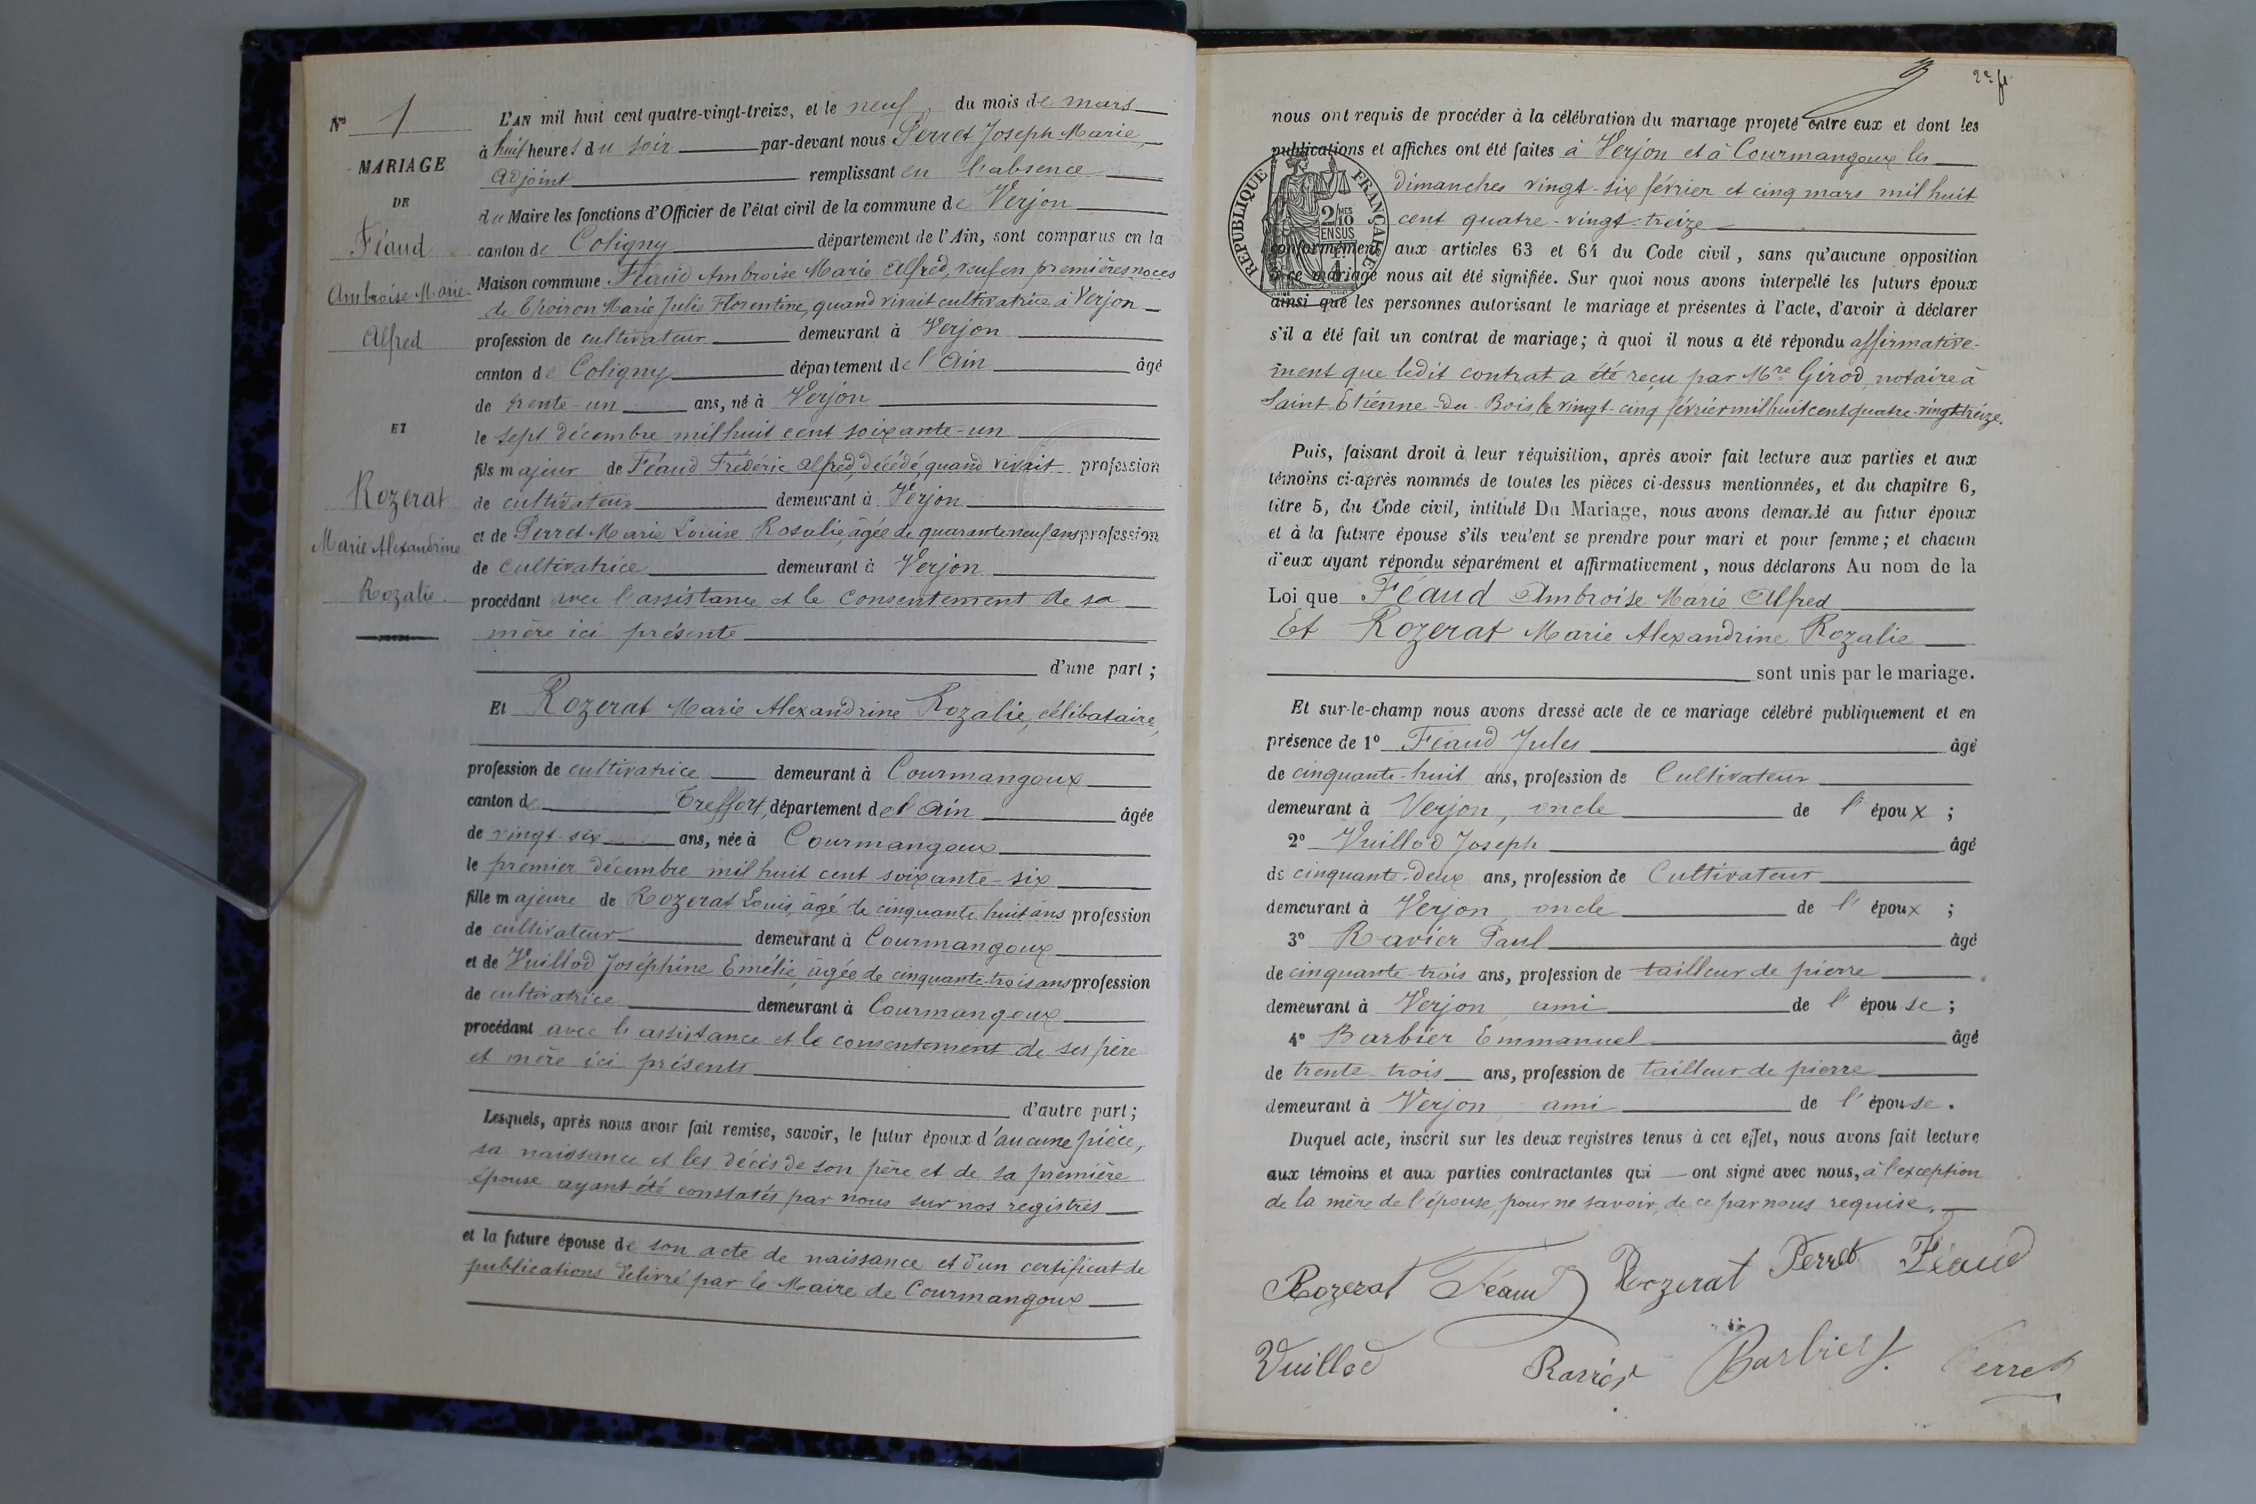 No 1
MARIAGE
DE
Féaud
Ambroise Marie
Alfred
ET
Rozerat
Marie Alexandrine
Rozalie
L'AN mil huit cent quatre-vingt-treize, et le neuf, du mois de mars
à huit heures du soir par-devant nous Perret Joseph Marie,
adjoint remplissant en l'absence
du Maire les fonctions d'Officier de l'état civil de la commune de Verjon
canton de Coligny département de l'Ain, sont comparus en la
Maison commune Féaud Ambroise Marie Alfred, veuf en premières noces
de Thoiron Marie Julie Florentine, quand vivait cultivatrice à Verjon
profession de cultivateur demeurant à Verjon
canton de Coligny département de l'Ain âgé
de trente-un ans, né à Verjon
le sept décembre mil huit cent soixante-un
fils majeur de Féaud Frédéric Alfred, décédé, quand vivait profession
de cultivateur demeurant à Verjon
et de Perret Marie Louise Rosalie, âgée de quarante neuf ans profession
de cultivatrice demeurant à Verjon
procédant avec l'assistance et le consentement de sa
mère ici présente
d'une part;
Et Rozerat Marie Alexandrine Rozalie, célibataire,
profession de cultivatrice demeurant à Courmangoux
canton de Treffort, département de l'Ain âgée
de vingt-six ans, née à Courmangoux
le premier décembre mil huit cent soixante-six
fille majeure de Rozerat Louis, âgé de cinquante huit ans profession
de cultivateur demeurant à Courmangoux
et de Vuillod Joséphine Emélie, âgée de cinquante-trois ans profession
de cultivatrice demeurant à Courmangoux
procédant avec l'assistance et le consentement de ses père
et mère ici présents
d'autre part;
Lesquels, après nous avoir fait remise, savoir, le futur époux d'aucune pièce,
sa naissance et les décès de son père et de sa première
épouse ayant été constatés par nous sur nos registres
et la future épouse de son acte de naissance et d'un certificat de
publications délivré par le Maire de Courmangoux
nous ont requis de procéder à la célébration du mariage projeté entre eux et dont les
publications et affiches ont été faites à Verjon et à Courmangoux les
dimanches vingt-six février et cinq mars mil huit
cent quatre-vingt-treize
RÉPUBLIQUE FRANÇAISE
2/10 EN SUS
conformément aux articles 63 et 64 du Code civil, sans qu'aucune opposition
à ce mariage nous ait été signifiée. Sur quoi nous avons interpellé les futurs époux
ainsi que les personnes autorisant le mariage et présentes à l'acte, d'avoir à déclarer
s'il a été fait un contrat de mariage; à quoi il nous a été répondu affirmative-
ment que ledit contrat a été reçu par Mre Girod, notaire à
Saint-Etienne-du-Bois le vingt-cinq février mil huit cent quatre-vingt-treize.
Puis, faisant droit à leur réquisition, après avoir fait lecture aux parties et aux
témoins ci-après nommés de toutes les pièces ci-dessus mentionnées, et du chapitre 6,
titre 5, du Code civil, intitulé Du Mariage, nous avons demandé au futur époux
et à la future épouse s'ils veulent se prendre pour mari et pour femme; et chacun
d'eux ayant répondu séparément et affirmativement, nous déclarons Au nom de la
Loi que Féaud Ambroise Marie Alfred
Et Rozerat Marie Alexandrine Rozalie
sont unis par le mariage.
Et sur-le-champ nous avons dressé acte de ce mariage célébré publiquement et en
présence de 1º Féaud Jules âgé
de cinquante-huit ans, profession de Cultivateur
demeurant à Verjon, oncle de l'époux;
2º Vuillod Joseph âgé
de cinquante-deux ans, profession de Cultivateur
demeurant à Verjon, oncle de l'époux;
3º Ravier Paul âgé
de cinquante-trois ans, profession de tailleur de pierre
demeurant à Verjon, ami de l'épouse;
4º Barbier Emmanuel âgé
de trente-trois ans, profession de tailleur de pierre
demeurant à Verjon, ami de l'épouse.
Duquel acte, inscrit sur les deux registres tenus à cet effet, nous avons fait lecture
aux témoins et aux parties contractantes qui ont signé avec nous, à l'exception
de la mère de l'épouse, pour ne savoir, de ce par nous requise.
Rozerat Féaud Rozerat Perret Féaud
Vuillod Ravier Barbier Perret